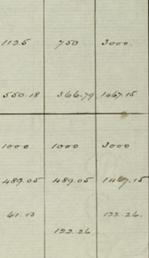 1125 750 3000.
550.18 366.79 1467.15
1000 1000 3000
489.05 489.05 1467.15
61.13 122.26.
122.26